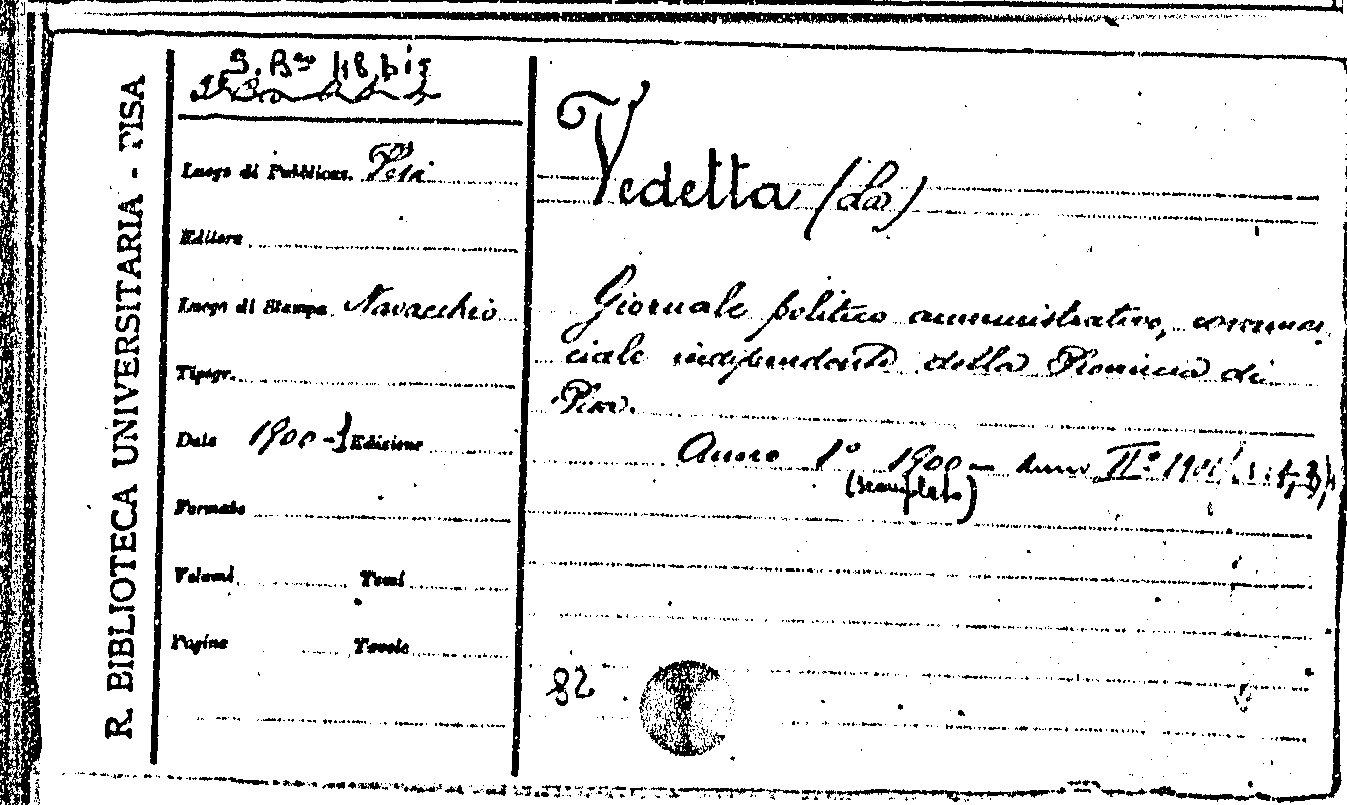 R. BIBLIOTECA UNIVERSITARIA - PISA
48 bis
Luogo di Pubblicaz. Pisa
Editore
Luogo di Stampa Navacchio
Tipogr.
Data 1900-1 Edizione
Formato
Volumi Tomi
Pagine Tavole
Vedetta (La)
Giornale politico amministrativo, commer-
ciale indipendente della Provincia di
Pisa.
Anno 1° 1900 - Anno II° 1901
(incompleto)
82